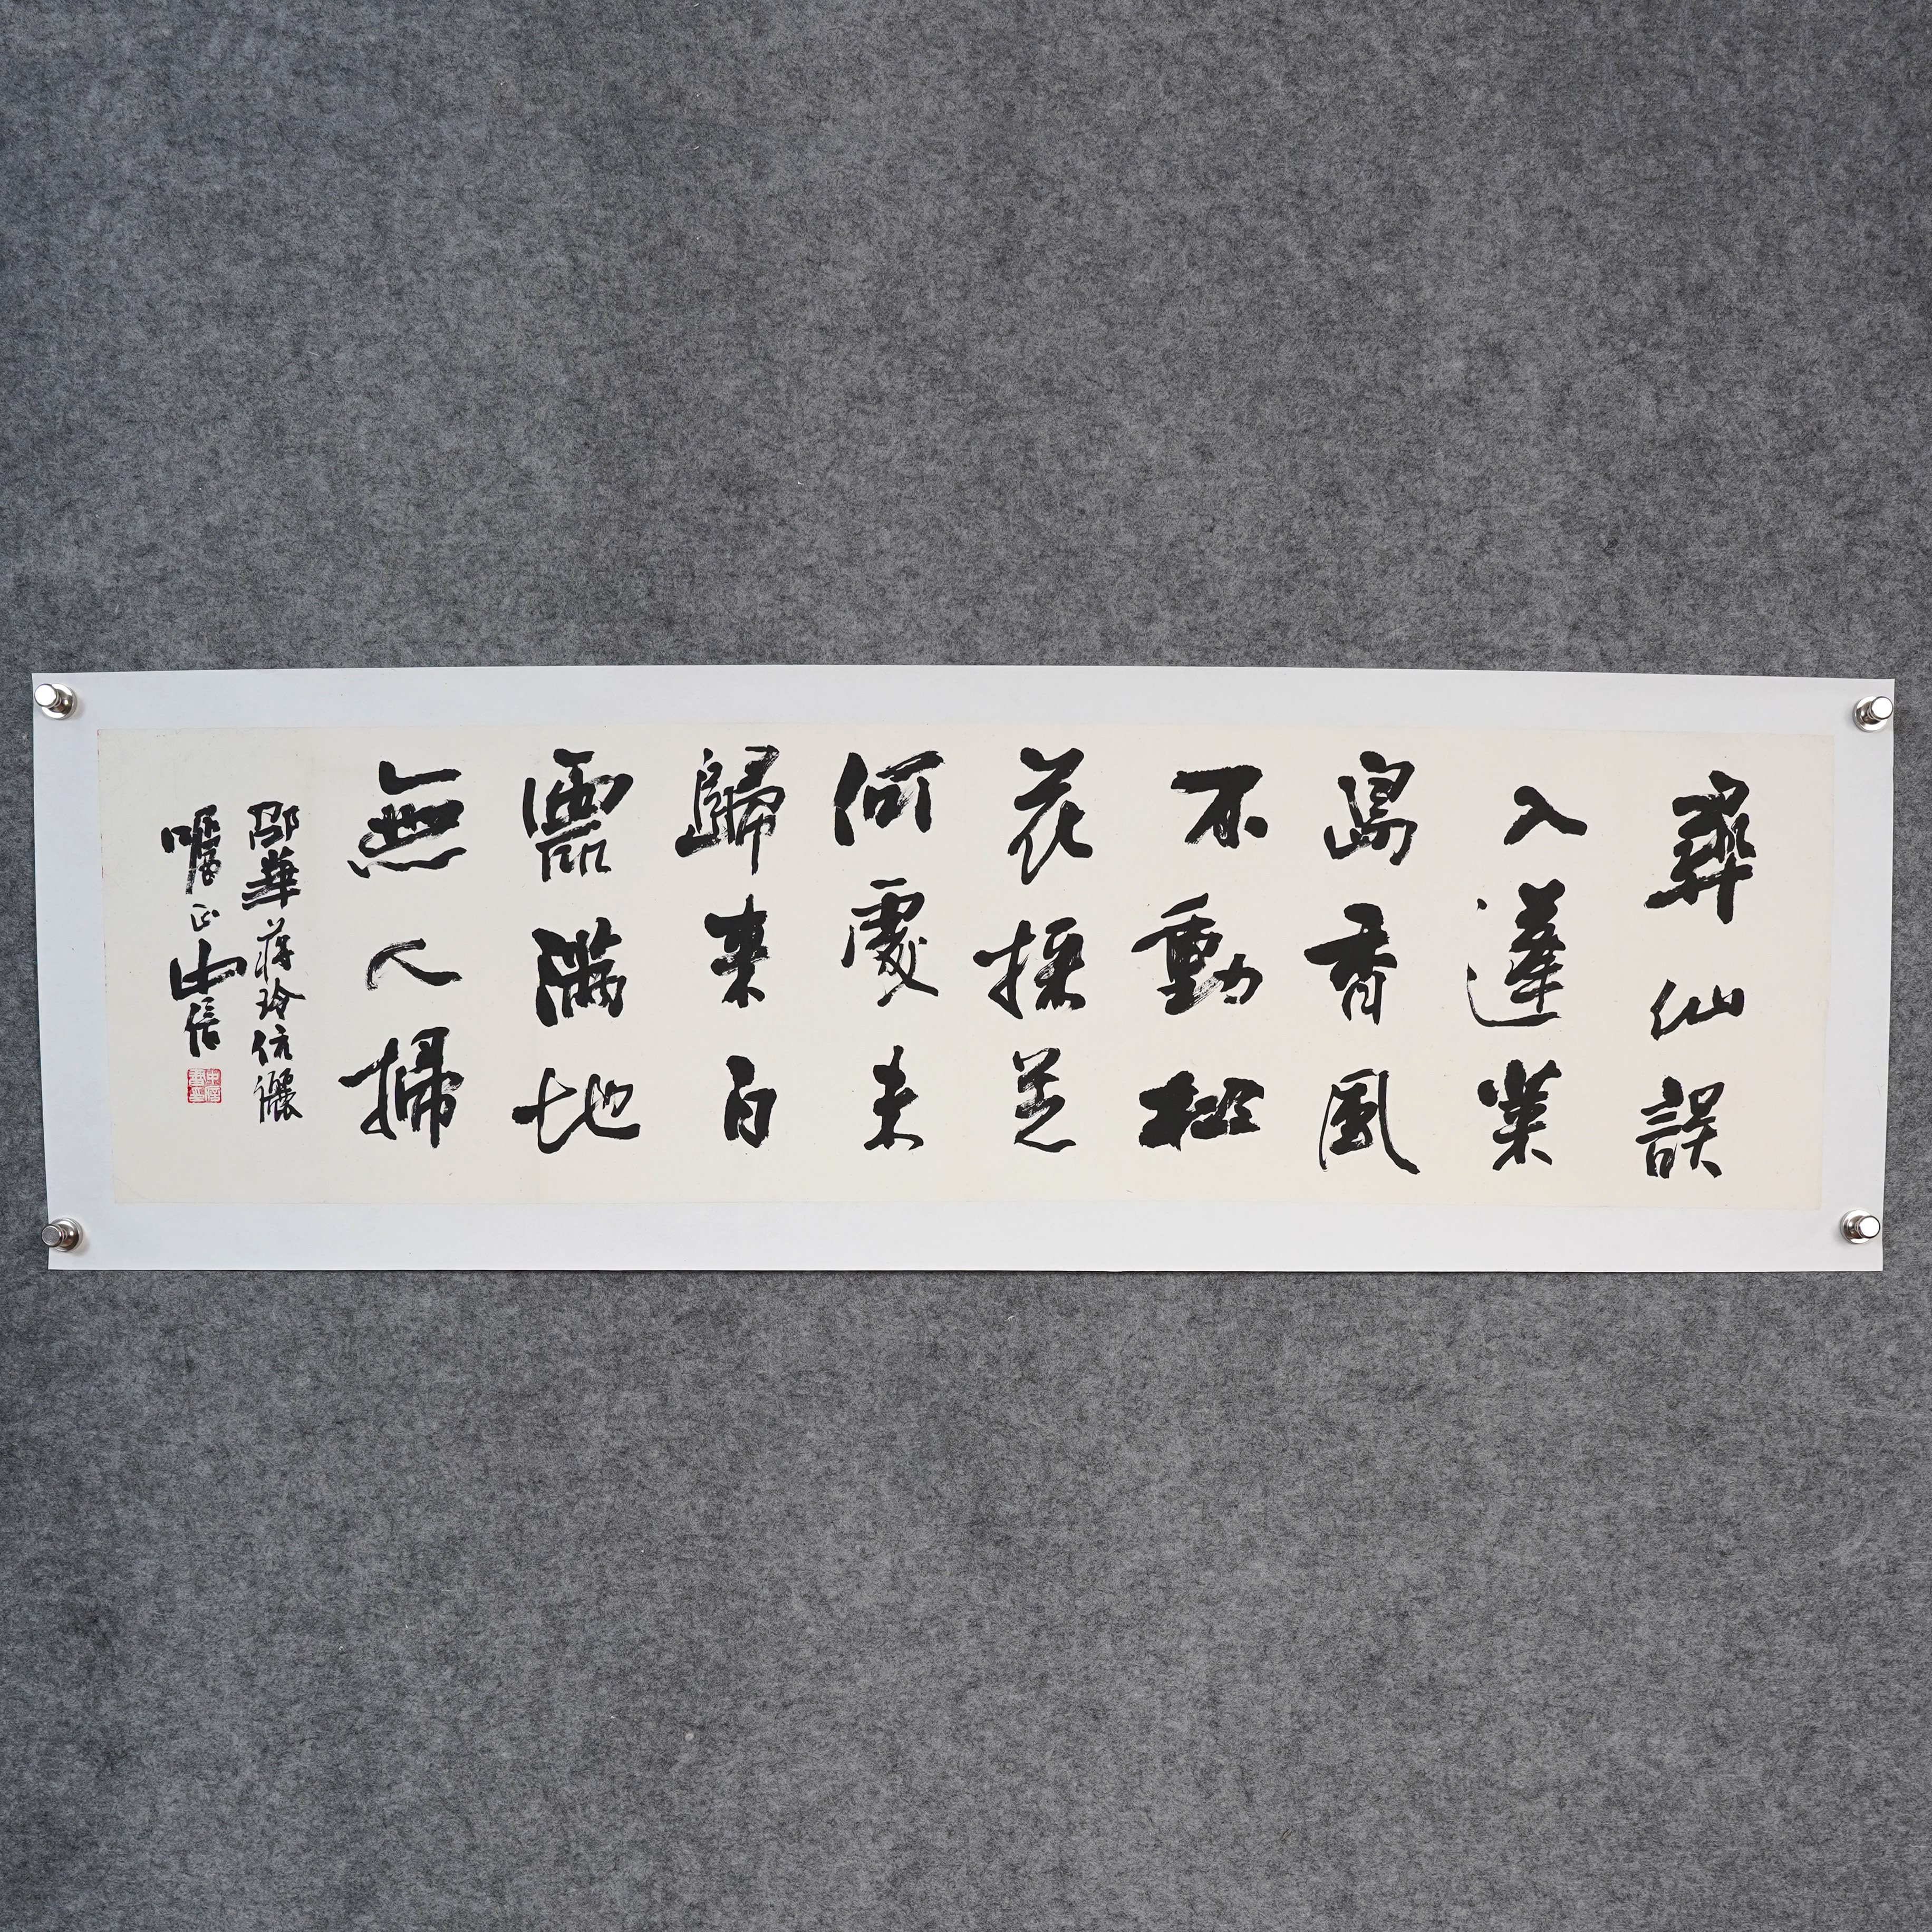 尋仙誤
入蓬萊
島香風
不動松
花採芝
何處未
歸來白
雲滿地
無人掃
邵華蔣玲伉儷
囑正